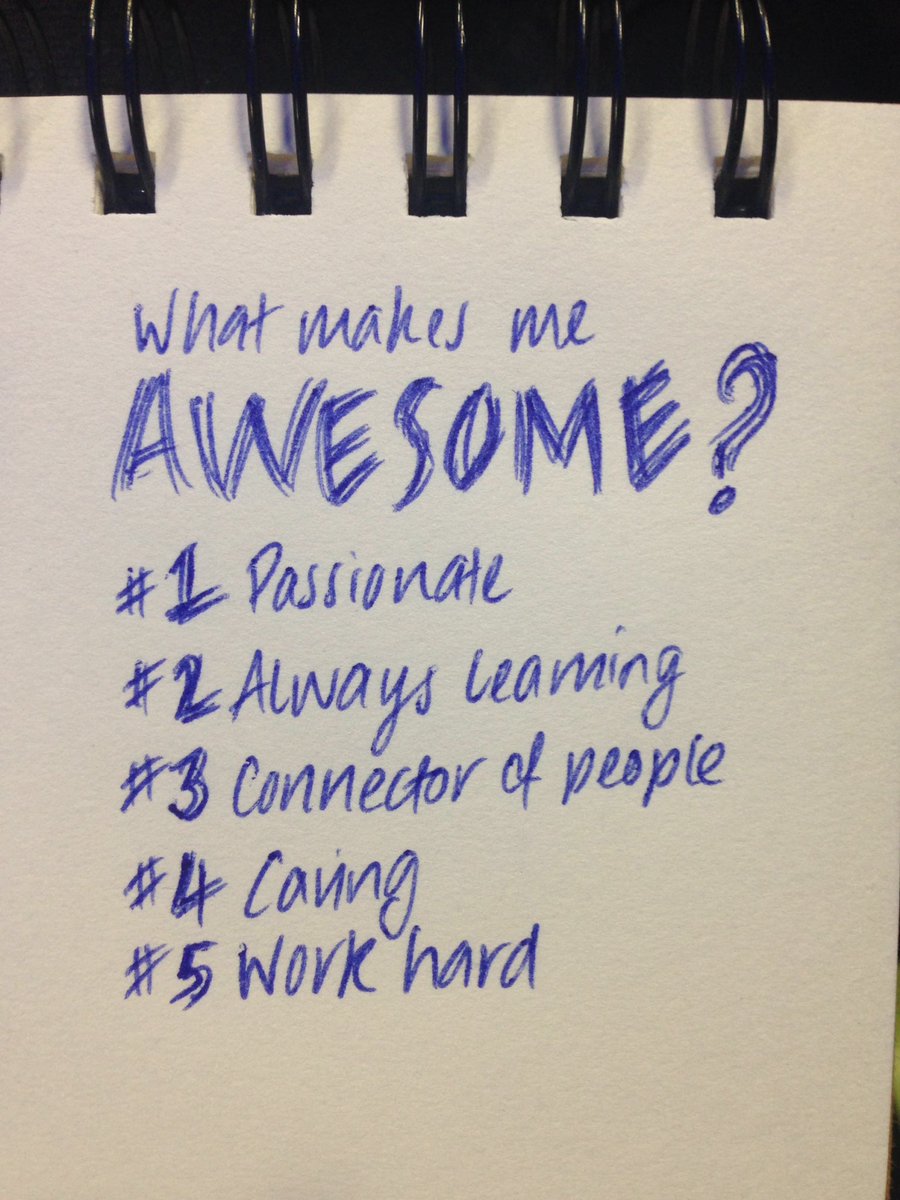 What makes me
AWESOME?
#1 Passionate
#2 Always learning
#3 Connector of people
#4 Caring
#5 Work hard